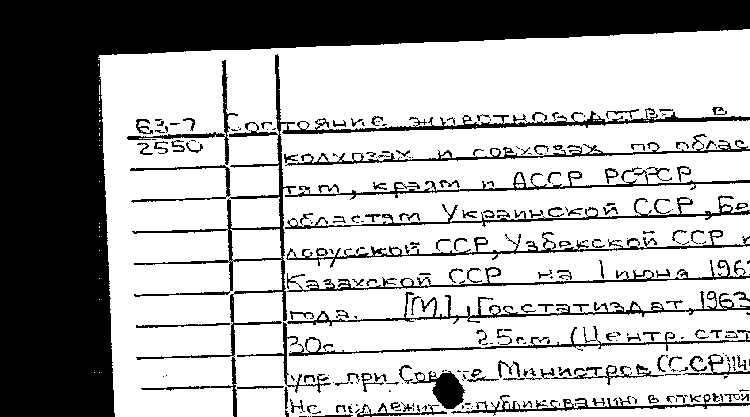 63-7 Состояние животноводства в
2550 колхозах и совхозах по облас
тям, краям и АССР РСФСР,
областям Украинской ССР, Бе
лорусской ССР, Узбекской ССР и
Казахской ССР на 1 июня 1963
года. [М.], Госстатиздат, 1963
30с. 25см. (Центр. стат.
упр. при Совете Министров СССР)
Не подлежит опубликованию в открытой